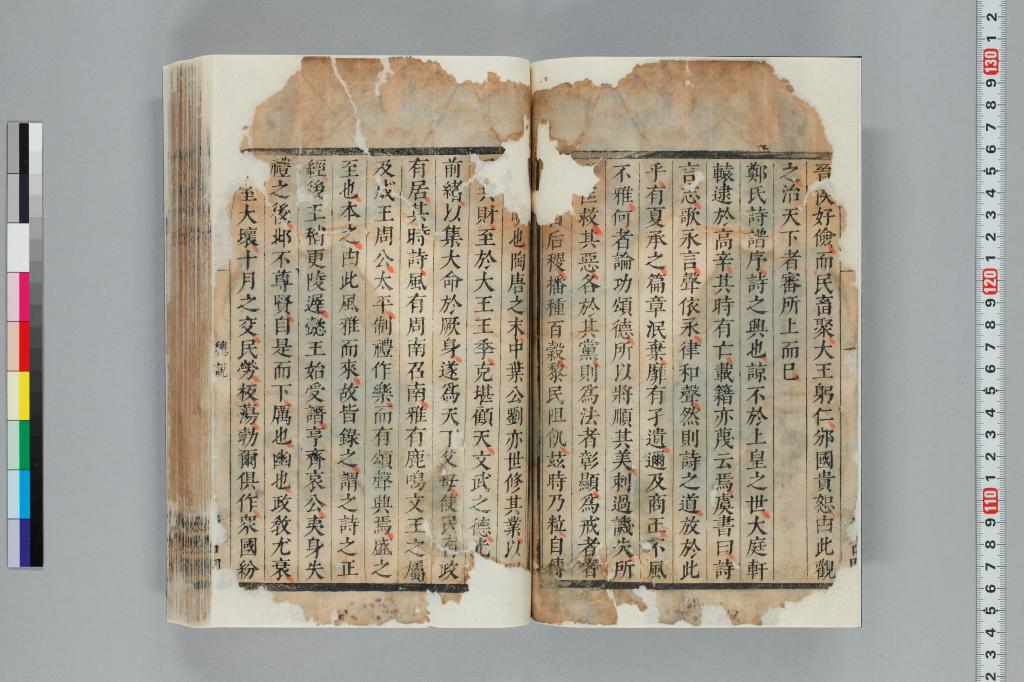 晉侯好儉而民畜聚大王躬仁邠國貴恕由此觀
之治天下者審所上而已
鄭氏詩譜序詩之興也諒不於上皇之世大庭軒
轅逮於高辛其時有亡載籍亦蔑云焉虞書曰詩
言志歌永言聲依永律和聲然則詩之道放於此
乎有夏承之篇章泯棄靡有孑遺邇及商王不風
不雅何者論功頌德所以將順其美刺過譏失所
救其惡各於其黨則為法者彰顯為戒者著
后稷播種百穀黎民阻飢茲時乃粒自傳
也陶唐之末中葉公劉亦世修其業以
共財至於大王王季克堪顧天文武之德光
前緒以集大命於厥身遂為天下父母使民有政
有居其時詩風有周南召南雅有鹿鳴文王之屬
及成王周公太平制禮作樂而有頌聲興焉盛之
至也本之由此風雅而來故皆錄之謂之詩之正
經後王稍更陵遲懿王始受譖亨齊哀公夷身失
禮之後邶不尊賢自是而下厲也幽也政教尤衰
至大壞十月之交民勞板蕩勃爾俱作衆國紛
總說